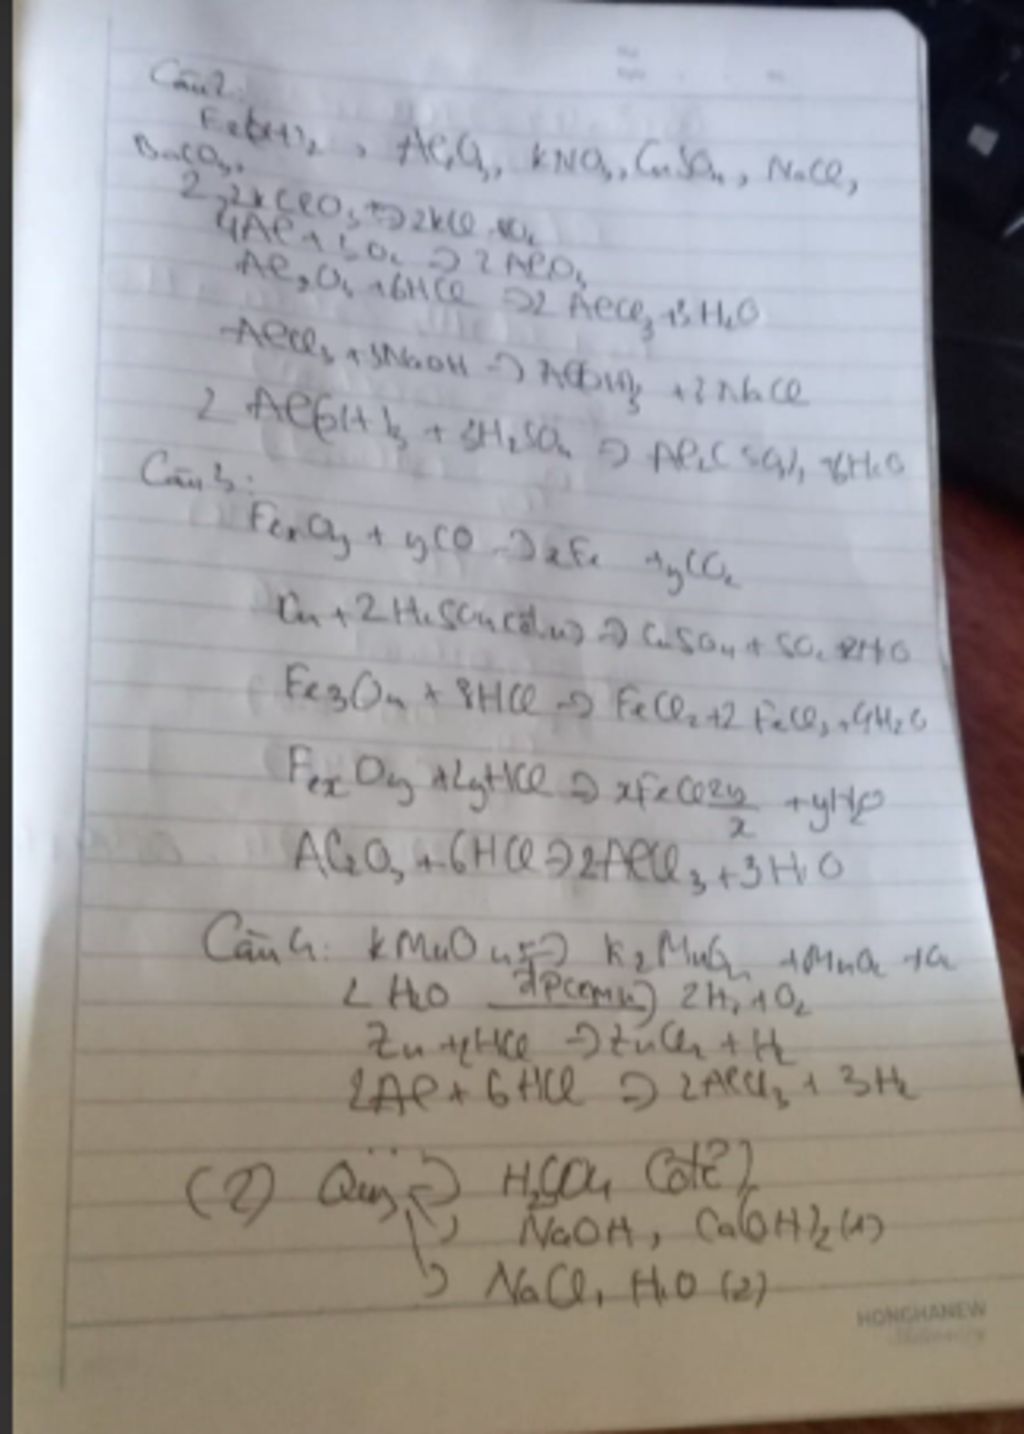 Câu 2:
Fe(OH)2, Al2O3, KNO3, CuSO4, NaCl,
BaCO3,
2, 2KClO3 => 2KCl
4Al + 3O2 => 2Al2O3
Al2O3 + 6HCl => 2AlCl3 + 3H2O
AlCl3 + 3NaOH => Al(OH)3 + 3NaCl
2Al(OH)3 + 3H2SO4 => Al2(SO4)3 + 6H2O
Câu 3:
FexOy + yCO => xFe + yCO2
Cu + 2H2SO4 => CuSO4 + SO2 2H2O
Fe3O4 + 8HCl => FeCl2 + 2FeCl3 + 4H2O
FexOy + 2yHCl => xFeCl2y/x + yH2O
Al2O3 + 6HCl => 2AlCl3 + 3H2O
Câu 4: KMnO4 => K2MnO4 + MnO2 + O2
2H2O 2H2 + O2
Zn + 2HCl => ZnCl2 + H2
2Al + 6HCl => 2AlCl3 + 3H2
(2) Quỳ => H2SO4
NaOH, Ca(OH)2 (1)
NaCl, H2O (2)
HONGHANEW